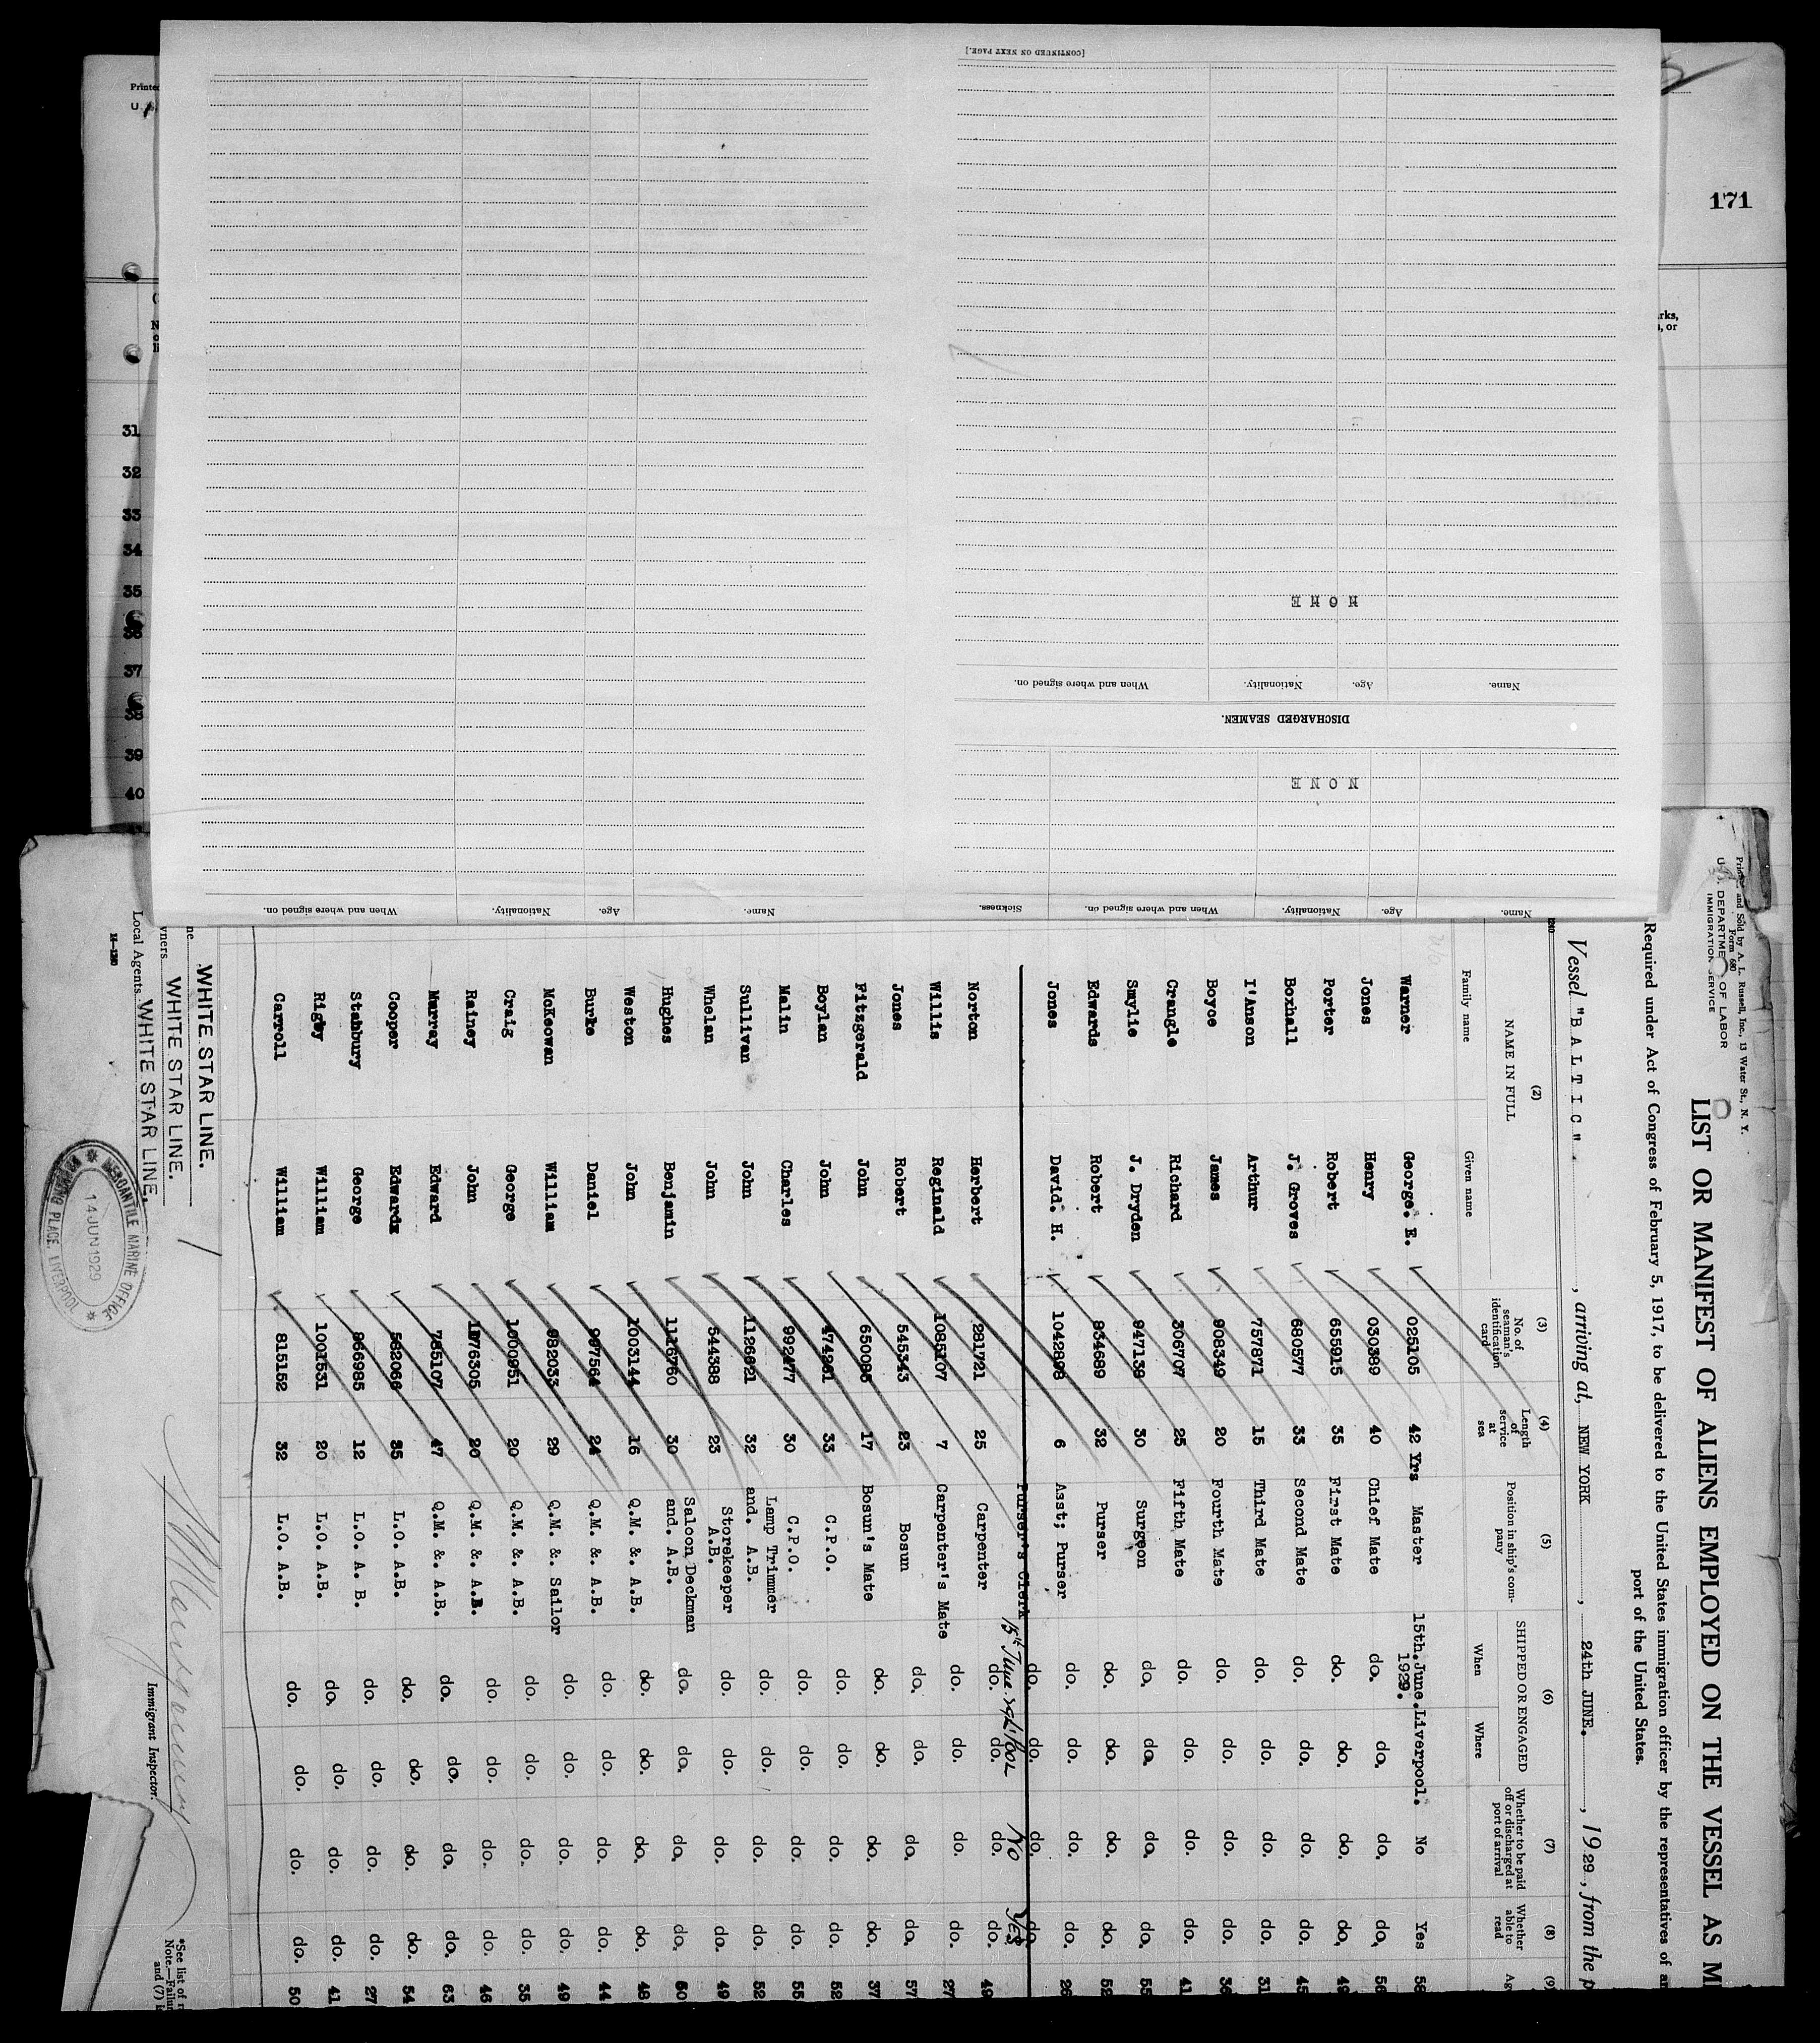 171
31
32
33
34
35
37
39
40
[CONTINUED ON NEXT PAGE.]
NONE
Name. Age. Nationality. When and where signed on.
DISCHARGED SEAMEN.
NONE
Name. Age. Nationality. When and where signed on. Sickness.
Name. Age. Nationality. When and where signed on.
Printed and Sold by A. L. Russell, Inc., 13 Water St., N. Y.
Form 680
U. S. DEPARTMENT OF LABOR
IMMIGRATION SERVICE
LIST OR MANIFEST OF ALIENS EMPLOYED ON THE VESSEL AS M
Required under Act of Congress of February 5, 1917, to be delivered to the United States immigration officer by the representatives of an
port of the United States.
Vessel "BALTIC" , arriving at, NEW YORK , 24th JUNE. , 1929, from the p
(2) (3) (4) (5) (6) (7) (8) (9)
NAME IN FULL No. of seaman's identification card Length of service at sea Position in ship's company SHIPPED OR ENGAGED Whether to be paid off or discharged at port of arrival Whether able to read Ag
Family name Given name When Where
Warner George. E. 025105 42 Yrs Master 15th.June.1929. Liverpool. No Yes 58
Jones Henry 030389 40 Chief Mate do. do. do. do. 56
Porter Robert 655915 35 First Mate do. do. do. do. 49
Boxhall J. Groves 680577 33 Second Mate do. do. do. do. 45
I'Anson Arthur 757871 15 Third Mate do. do. do. do. 31
Boyce James 908349 20 Fourth Mate do. do. do. do. 36
Crangle Richard 306707 25 Fifth Mate do. do. do. do. 41
Smylie J. Dryden 947139 30 Surgeon do. do. do. do. 55
Edwards Robert 934689 32 Purser do. do. do. do. 52
Jones David. H. 1042898 6 Asst; Purser do. do. do. do. 26
Purser's Clerk do. do. do. do.
15th June. 29 L'Pool No Yes
Norton Herbert 281721 25 Carpenter do. do. do. do. 49
Willis Reginald 1085107 7 Carpenter's Mate do. do. do. do. 27
Jones Robert 545343 23 Bosun do. do. do. do. 57
Fitzgerald John 650085 17 Bosun's Mate do. do. do. do. 37
Boylan John 474261 33 C.P.O. do. do. do. do. 52
Malin Charles 992477 30 C.P.O. do. do. do. do. 55
Sullivan John 1126621 32 Lamp Trimmer and. A.B. do. do. do. do. 52
Whelan John 544388 23 Storekeeper A.B. do. do. do. do. 49
Hughes Benjamin 1116760 30 Saloon Deckman and. A.B. do. do. do. do. 50
Weston John 1003144 16 Q.M. &. A.B. do. do. do. do. 48
Burke Daniel 997564 24 Q.M. &. A.B. do. do. do. do. 44
McKeowan William 982033 29 Q.M. &. Sailor do. do. do. do. 49
Craig George 1000951 20 Q.M. &. A.B. do. do. do. do. 35
Rainey John 1078305 20 Q.M. &. A.B. do. do. do. do. 46
Murray Edward 785107 47 Q.M. &. A.B. do. do. do. do. 63
Cooper Edward 582066 35 L.O. A.B. do. do. do. do. 54
Stabbury George 966985 12 L.O. A. B. do. do. do. do. 27
Rigby William 1001531 20 L.O. A.B. do. do. do. do. 41
Carroll William 815152 32 L.O. A.B. do. do. do. do. 50
WHITE STAR LINE.
WHITE STAR LINE.
Local Agents WHITE STAR LINE.
14—1240
MERCANTILE MARINE OFFICE
14 JUN 1929
PLACE, LIVERPOOL
Immigrant Inspector.
*See list of r
Note.—Failur
and (7) i